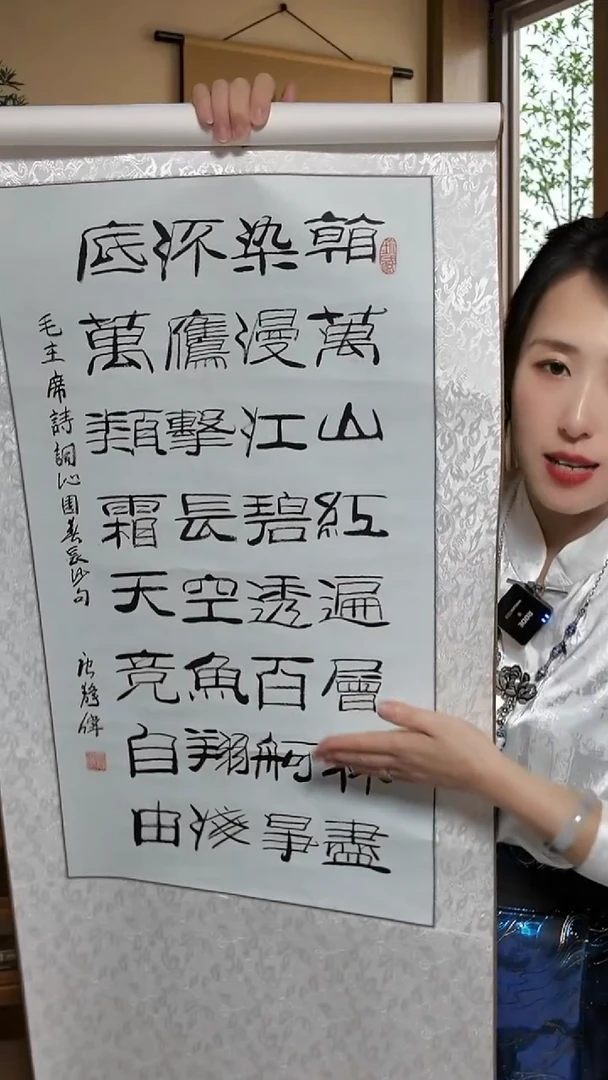 看萬山紅遍層林盡
染漫江碧透百舸爭
流鷹擊長空魚翔淺
底萬類霜天竞自由
毛主席詩詞沁園春長沙句